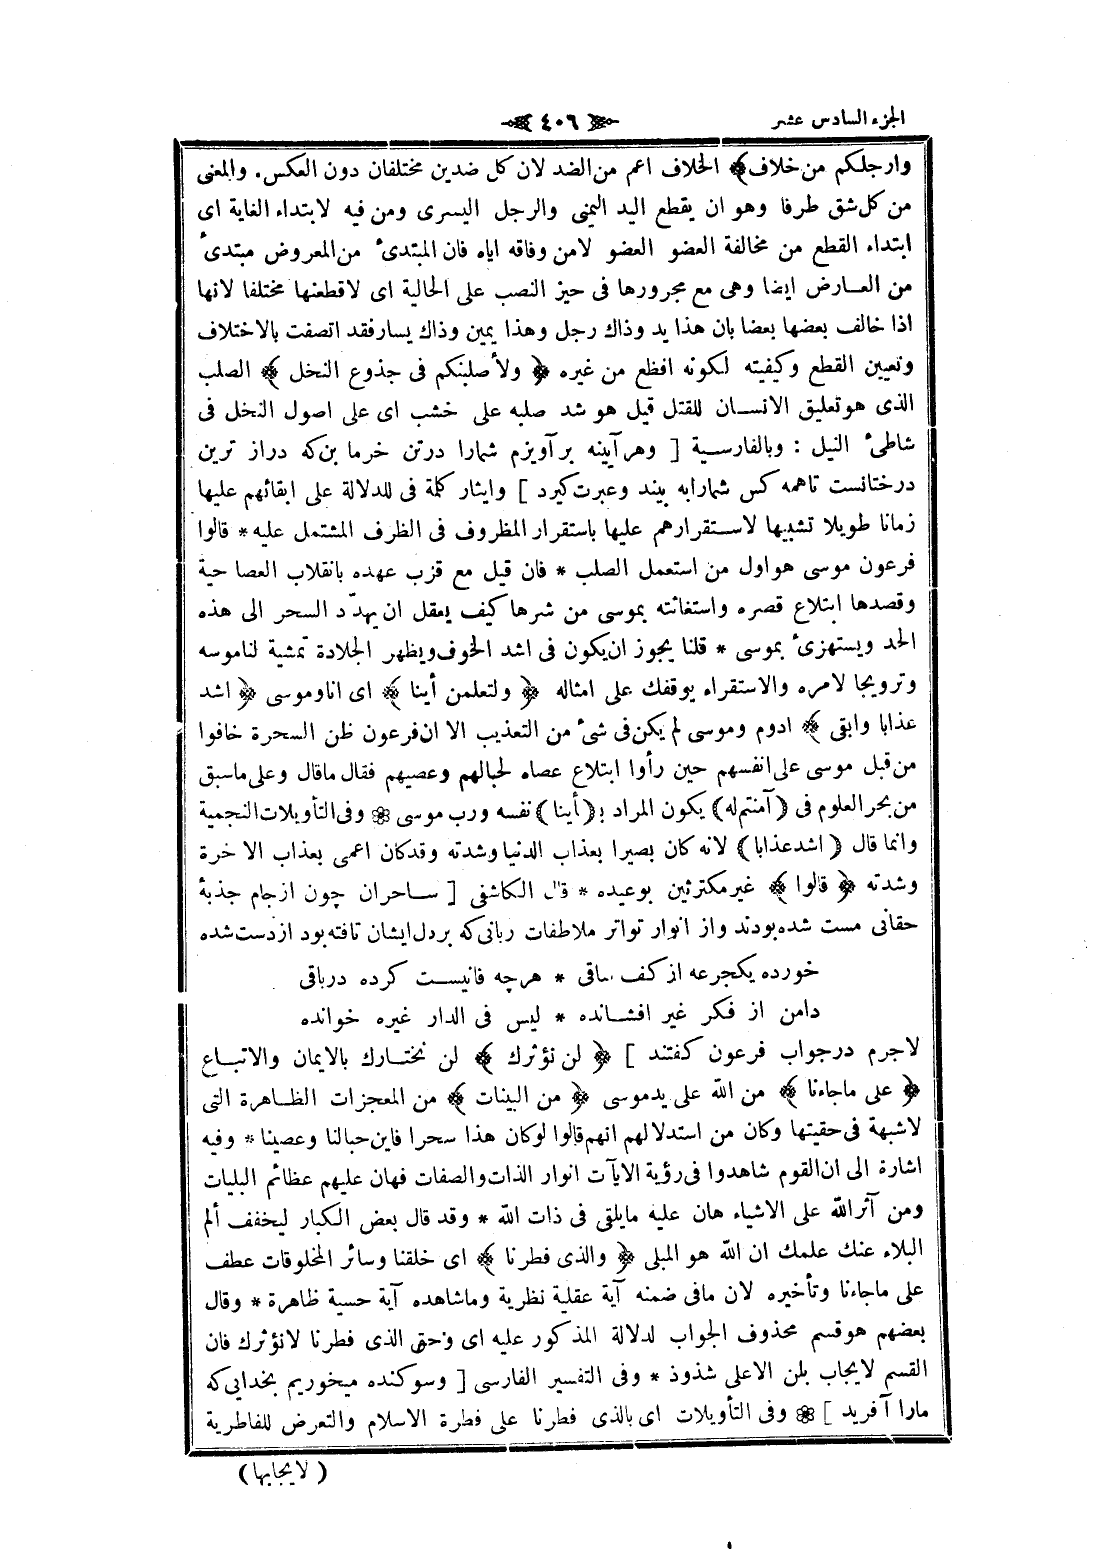 الجزء السادس عشر ﴿ ٤٠٦ ﴾
وارجلكم من خلاف﴾ الخلاف اعم من الضد لان كل ضدين مختلفان دون العكس. والمعنى
من كل شق طرفا وهو ان يقطع اليد اليمنى والرجل اليسرى ومن فيه لابتداء الغاية اى
ابتداء القطع من مخالفة العضو العضو لامن وفاقه اياه فان المبتدئ من المعروض مبتدئ
من العارض ايضا وهى مع مجرورها فى حيز النصب على الحالية اى لاقطعنها مختلفا لانها
اذا خالف بعضها بعضا بان هذا يد وذاك رجل وهذا يمين وذاك يسار فقد اتصفت بالاختلاف
وتعيين القطع وكيفيته لكونه افظع من غيره ﴿ ولأصلبنكم فى جذوع النخل ﴾ الصلب
الذى هو تعليق الانسان للقتل قيل هو شد صلبه على خشب اى على اصول النخل فى
شاطئ النيل : وبالفارسية [ وهر آيينه بر آويزم شمارا درتن خرما بن كه دراز ترين
درختانست تا همه كس شمارا به بيند وعبرت كيرد ] وايثار كلمة فى للدلالة على ابقائهم عليها
زمانا طويلا تشبيها لاستقرارهم عليها باستقرار المظروف فى الظرف المشتمل عليه * قالوا
فرعون موسى هو اول من استعمل الصلب * فان قيل مع قرب عهده بانقلاب العصا حية
وقصدها ابتلاع قصره واستغاثته بموسى من شرها كيف يعقل ان يهدّد السحر الى هذه
الحد ويستهزئ بموسى * قلنا يجوز ان يكون فى اشد الخوف ويظهر الجلادة تمشية لناموسه
وترويجا لامره والاستقراء يوقفك على امثاله ﴿ ولتعلمن أينا ﴾ اى انا وموسى ﴿ اشد
عذابا وابقى ﴾ ادوم وموسى لم يكن فى شئ من التعذيب الا ان فرعون ظن السحرة خافوا
من قبل موسى على انفسهم حين رأوا ابتلاع عصاه لحبالهم وعصيهم فقال ماقال وعلى ماسبق
من بحر العلوم فى ( آمنتم له ) يكون المراد بـ( أينا ) نفسه ورب موسى ❁ وفى التأويلات النجمية
وانما قال ( اشد عذابا ) لانه كان بصيرا بعذاب الدنيا وشدته وقد كان اعمى بعذاب الآخرة
وشدته ﴿ قالوا ﴾ غير مكترثين بوعيده * قال الكاشفى [ ساحران چون از جام جذبۀ
حقانى مست شده بودند واز انوار تواتر ملاطفات ربانى كه بر دل ايشان تافته بود از دست شده
خورده يكجرعه از كف ساقى * هرچه فانيست كرده درباقى
دامن از فكر غير افشانده * ليس فى الدار غيره خوانده
لاجرم درجواب فرعون كفتند ] ﴿ لن نؤثرك ﴾ لن نختارك بالايمان والاتباع
﴿ على ماجاءنا ﴾ من الله على يد موسى ﴿ من البينات ﴾ من المعجزات الظاهرة التى
لاشبهة فى حقيتها وكان من استدلالهم انهم قالوا لو كان هذا سحرا فاين حبالنا وعصينا * وفيه
اشارة الى ان القوم شاهدوا فى رؤية الآيات انوار الذات والصفات فهان عليهم عظائم البليات
ومن آثر الله على الاشياء هان عليه مايلقى فى ذات الله * وقد قال بعض الكبار ليخفف ألم
البلاء عنك علمك ان الله هو المبلى ﴿ والذى فطرنا ﴾ اى خلقنا وسائر المخلوقات عطف
على ماجاءنا وتأخيره لان مافى ضمنه آية عقلية نظرية وماشاهده آية حسية ظاهرة * وقال
بعضهم هو قسم محذوف الجواب لدلالة المذكور عليه اى وحق الذى فطرنا لانؤثرك فان
القسم لايجاب بلن الا على شذوذ * وفى التفسير الفارسى [ وسوكنده ميخوريم بخدايى كه
مارا آفريد ] ❁ وفى التأويلات اى بالذى فطرنا على فطرة الاسلام والتعرض للفاطرية
( لايجابها )